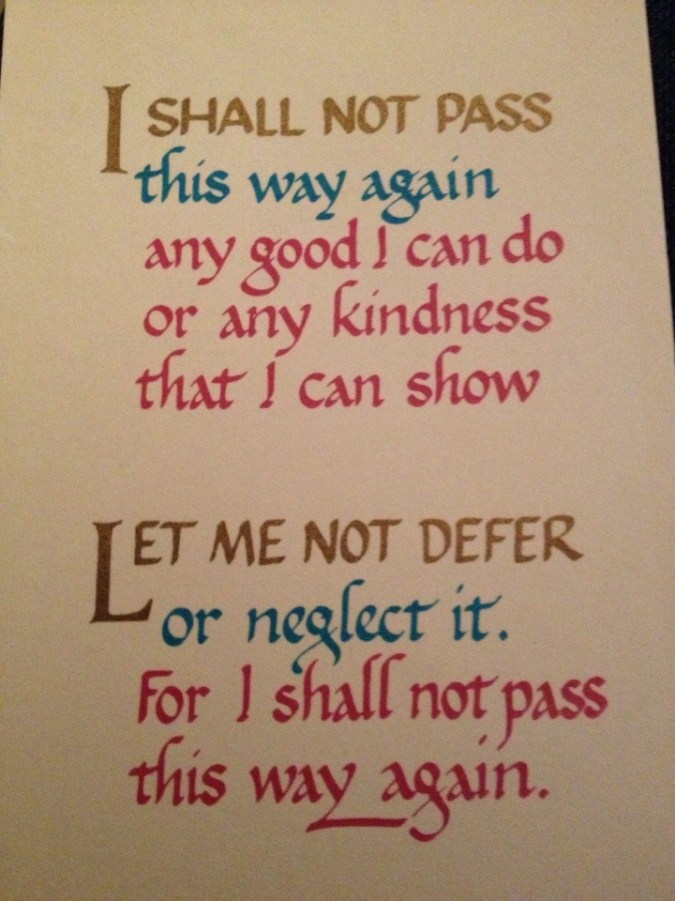 I SHALL NOT PASS
this way again
any good I can do
or any kindness
that I can show
LET ME NOT DEFER
or neglect it.
For I shall not pass
this way again.